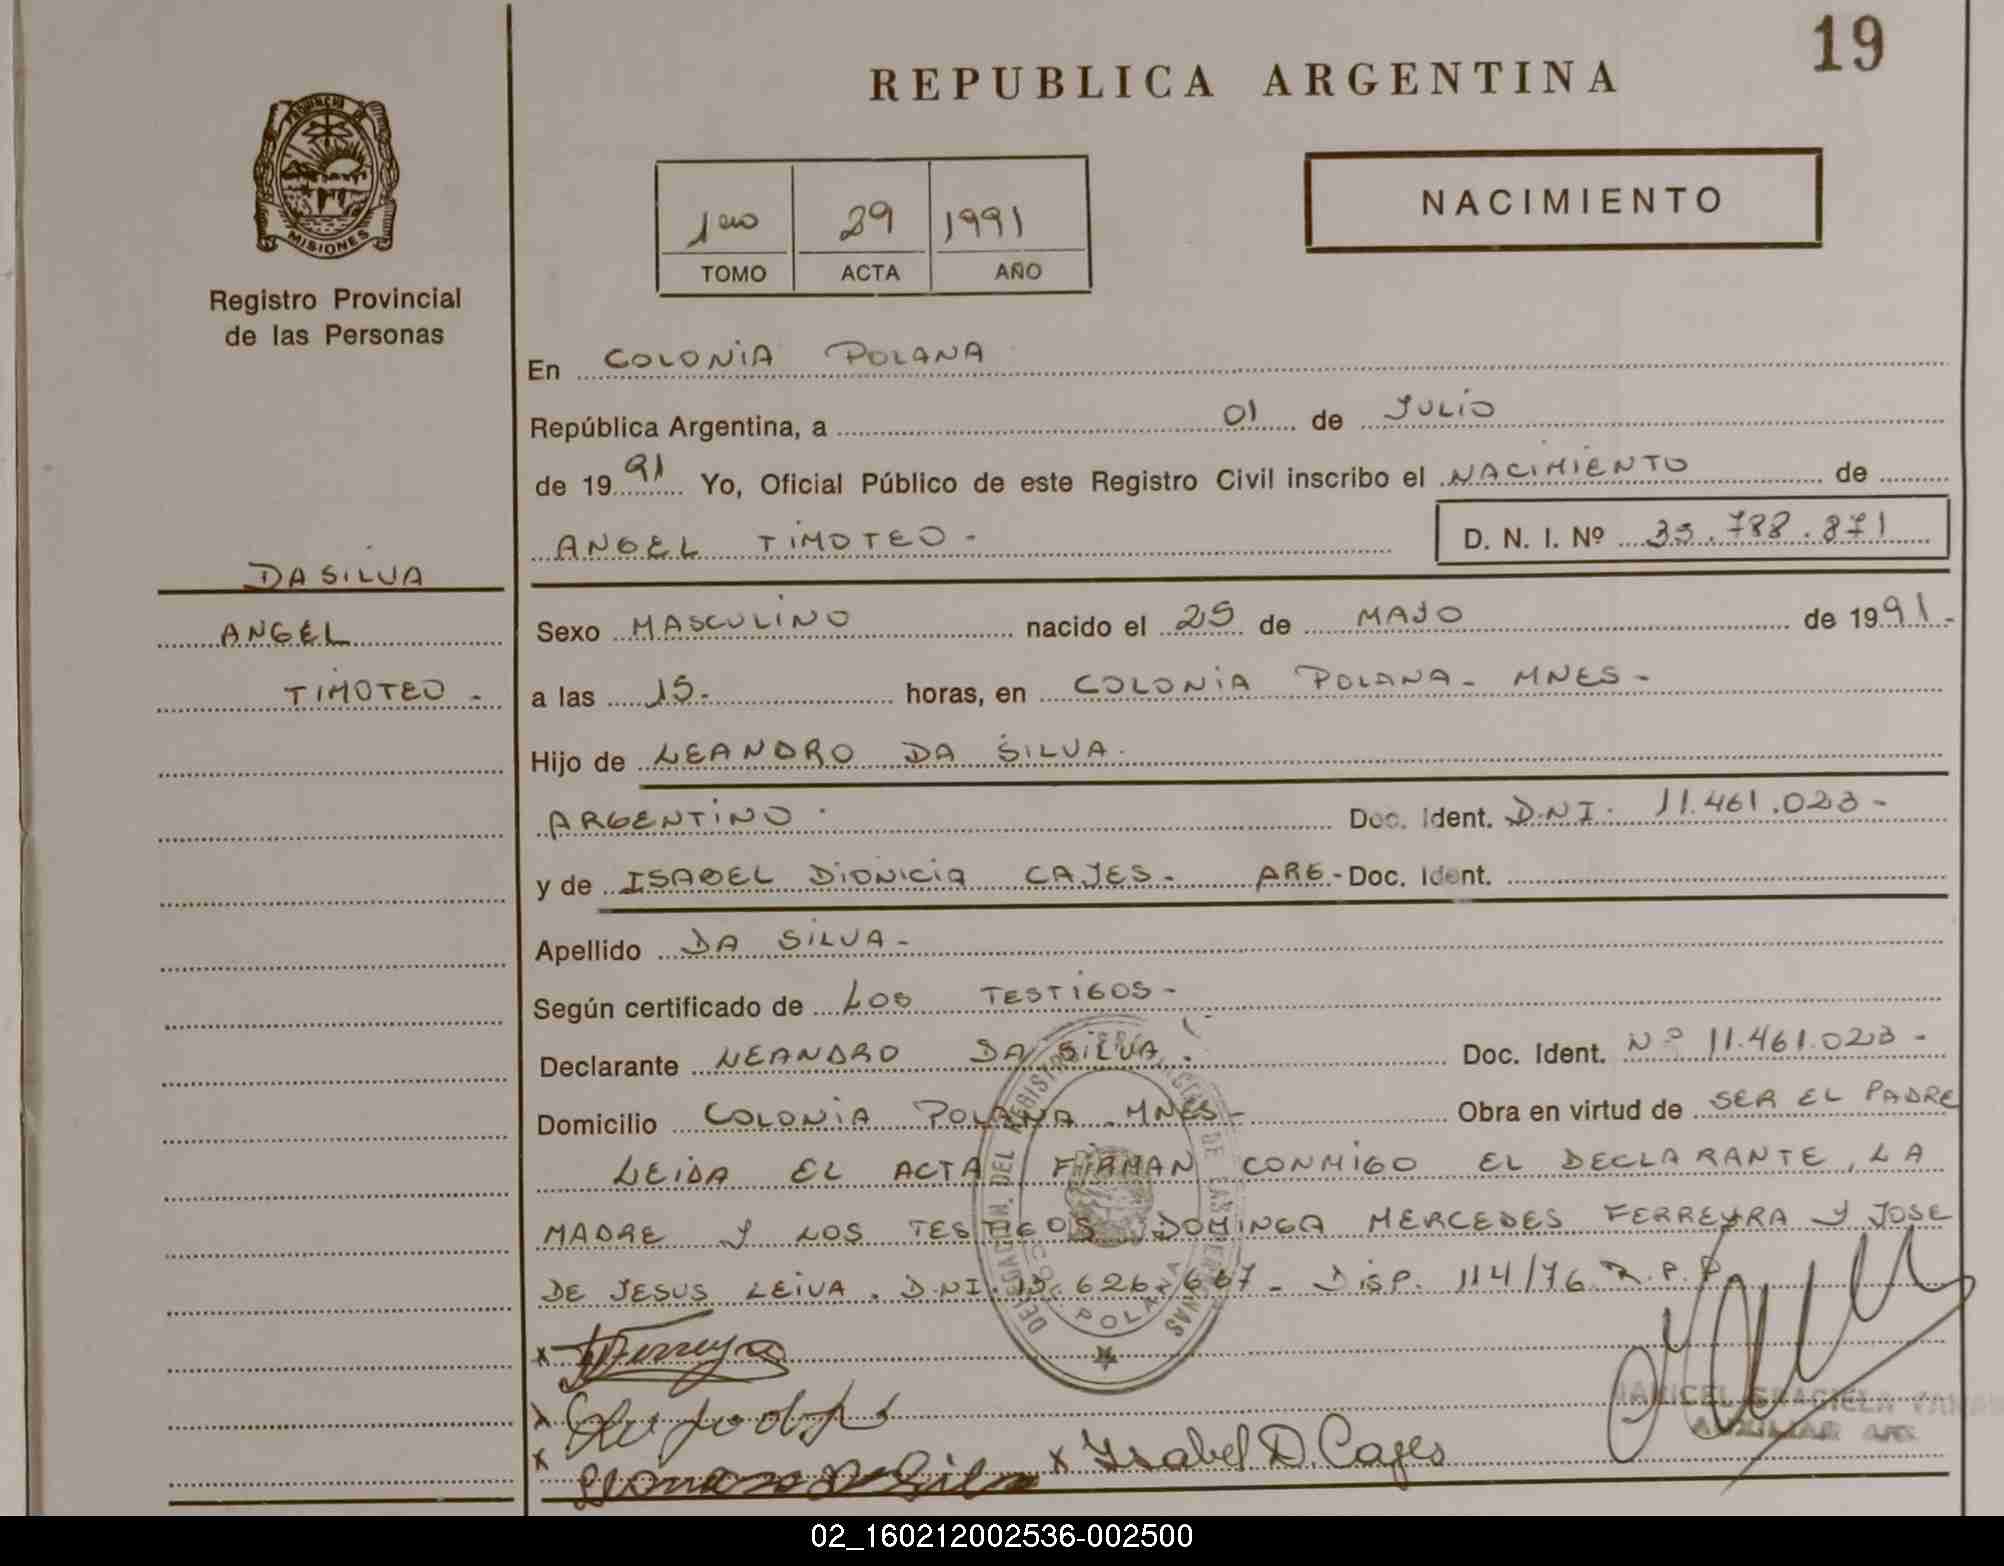 19
REPUBLICA ARGENTINA
NACIMIENTO
1ero 29 1991
TOMO ACTA AÑO
MISIONES
Registro Provincial
de las Personas
DA SILVA
ANGEL
TIMOTEO -
En COLONIA POLANA
República Argentina, a 01 de JULIO
de 1991 Yo, Oficial Público de este Registro Civil inscribo el NACIMIENTO de
ANGEL TIMOTEO - D. N. I. Nº 35.788.871
Sexo MASCULINO nacido el 25 de MAYO de 1991-
a las 15- horas, en COLONIA POLANA - MNES -
Hijo de LEANDRO DA SILVA.
ARGENTINO. Doc. Ident. D.N.I. 11.461.023-
y de ISABEL DIONICIA CAJES - ARG - Doc. Ident.
Apellido DA SILVA -
Según certificado de LOS TESTIGOS -
Declarante LEANDRO DA SILVA. Doc. Ident. Nº 11.461.023-
Domicilio COLONIA POLANA - MNES - Obra en virtud de SER EL PADRE
LEIDA EL ACTA FIRMAN CONMIGO EL DECLARANTE, LA
MADRE Y LOS TESTIGOS DOMINGA MERCEDES FERREYRA Y JOSE
DE JESUS LEIVA. D.N.I. 13.626.667 - DISP. 114/76 R.P.P.
x Ferreyra
x
x x Isabel D. Cajes
POLANA
GRACIELA
AUXILIAR
02_160212002536-002500